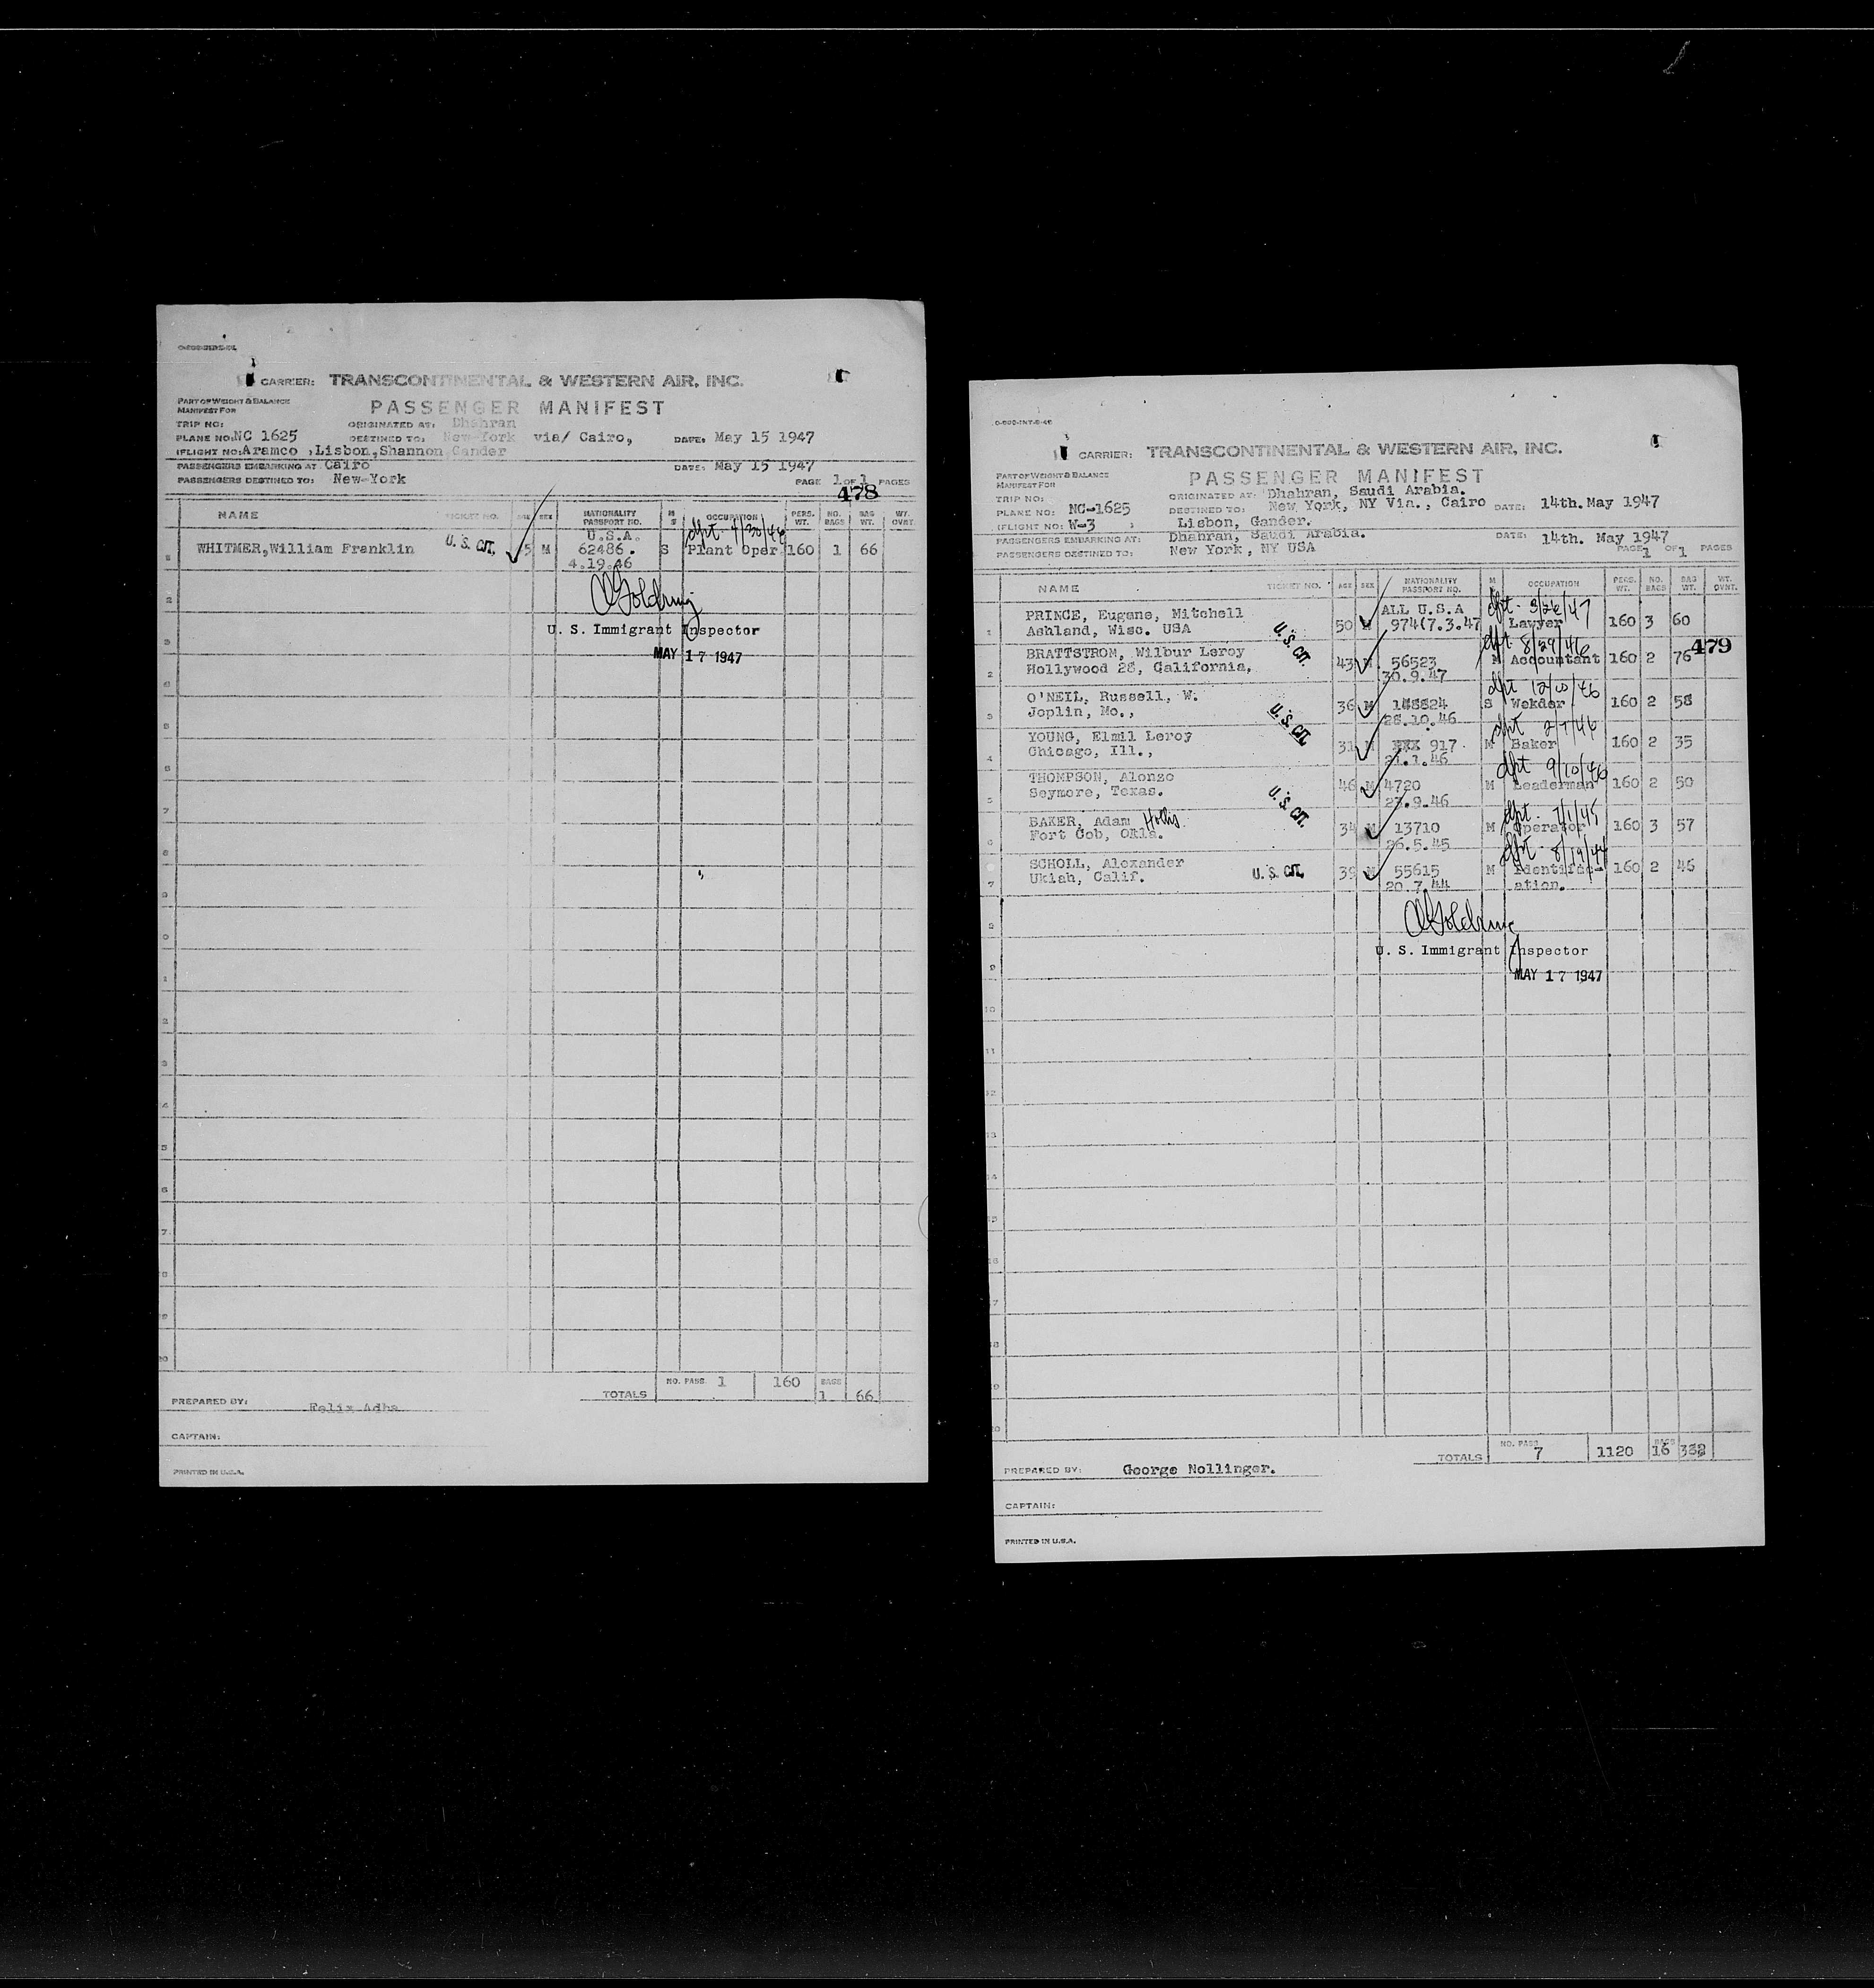 CARRIER: TRANSCONTINENTAL & WESTERN AIR, INC.
PART OF WEIGHT & BALANCE
MANIFEST FOR
PASSENGER MANIFEST
TRIP NO: ORIGINATED AT: Dhahran
PLANE NO: NC 1625 DESTINED TO: New York via/ Cairo, DATE: May 15 1947
(FLIGHT NO: Aramco ) Lisbon, Shannon Gander
PASSENGERS EMBARKING AT: Cairo DATE: May 15 1947
PASSENGERS DESTINED TO: New York PAGE 1 OF 1 PAGES
478
NAME TICKET NO. AGE SEX NATIONALITY PASSPORT NO. M S OCCUPATION PERS. WT. NO. BAGS BAG WT. WT. OVNT.
dpt. 4/30/46
U.S.A.
WHITMER, William Franklin U. S. CIT. M 62486. S Plant Oper 160 1 66
4.19.46
U. S. Immigrant Inspector
MAY 17 1947
TOTALS NO. PASS. 1 160 BAGS 1 66
PREPARED BY: Felix Adha
CAPTAIN:
PRINTED IN U.S.A.
CARRIER: TRANSCONTINENTAL & WESTERN AIR, INC.
PART OF WEIGHT & BALANCE
MANIFEST FOR
PASSENGER MANIFEST
TRIP NO: ORIGINATED AT: Dhahran, Saudi Arabia.
PLANE NO: NC-1625 DESTINED TO: New York, NY Via., Cairo DATE: 14th. May 1947
(FLIGHT NO: W-3 ) Lisbon, Gander.
PASSENGERS EMBARKING AT: Dhahran, Saudi Arabia. DATE: 14th. May 1947
PASSENGERS DESTINED TO: New York, NY USA PAGE 1 OF 1 PAGES
NAME TICKET NO. AGE SEX NATIONALITY PASSPORT NO. M S OCCUPATION PERS. WT. NO. BAGS BAG WT. WT. OVNT.
PRINCE, Eugene, Mitchell ALL U.S.A dpt. 3/26/47
1 Ashland, Wisc. USA U. S. CIT. 50 M 974(7.3.47 Lawyer 160 3 60
479
BRATTSTROM, Wilbur Leroy dpt 8/29/46
2 Hollywood 28, California, 43 M 56523 M Accountant 160 2 76
30.9.47
O'NEIL, Russell, W. dpt 12/10/46
3 Joplin, Mo., U. S. CIT. 36 M S Wekder 160 2 58
28.10.46
YOUNG, Elmil Leroy dpt 2/7/46
4 Chicago, Ill., 31 M XXX 917 M Baker 160 2 35
21.1.46
THOMPSON, Alonzo dpt 9/10/46
5 Seymore, Texas. U. S. CIT. 46 M 4720 M Leaderman 160 2 50
23.9.46
BAKER, Adam Hollis dpt. 7/1/45
6 Fort Cob, Okla. 34 M 13710 M Operator 160 3 57
26.5.45
SCHOLL, Alexander dpt. 8/19/44
7 Ukiah, Calif. U. S. CIT. 39 M 55615 M Identific-
20.7.44 ation. 160 2 46
U. S. Immigrant Inspector
MAY 17 1947
TOTALS NO. PASS 7 1120 BAGS 16
PREPARED BY: George Nollinger.
CAPTAIN:
PRINTED IN U.S.A.